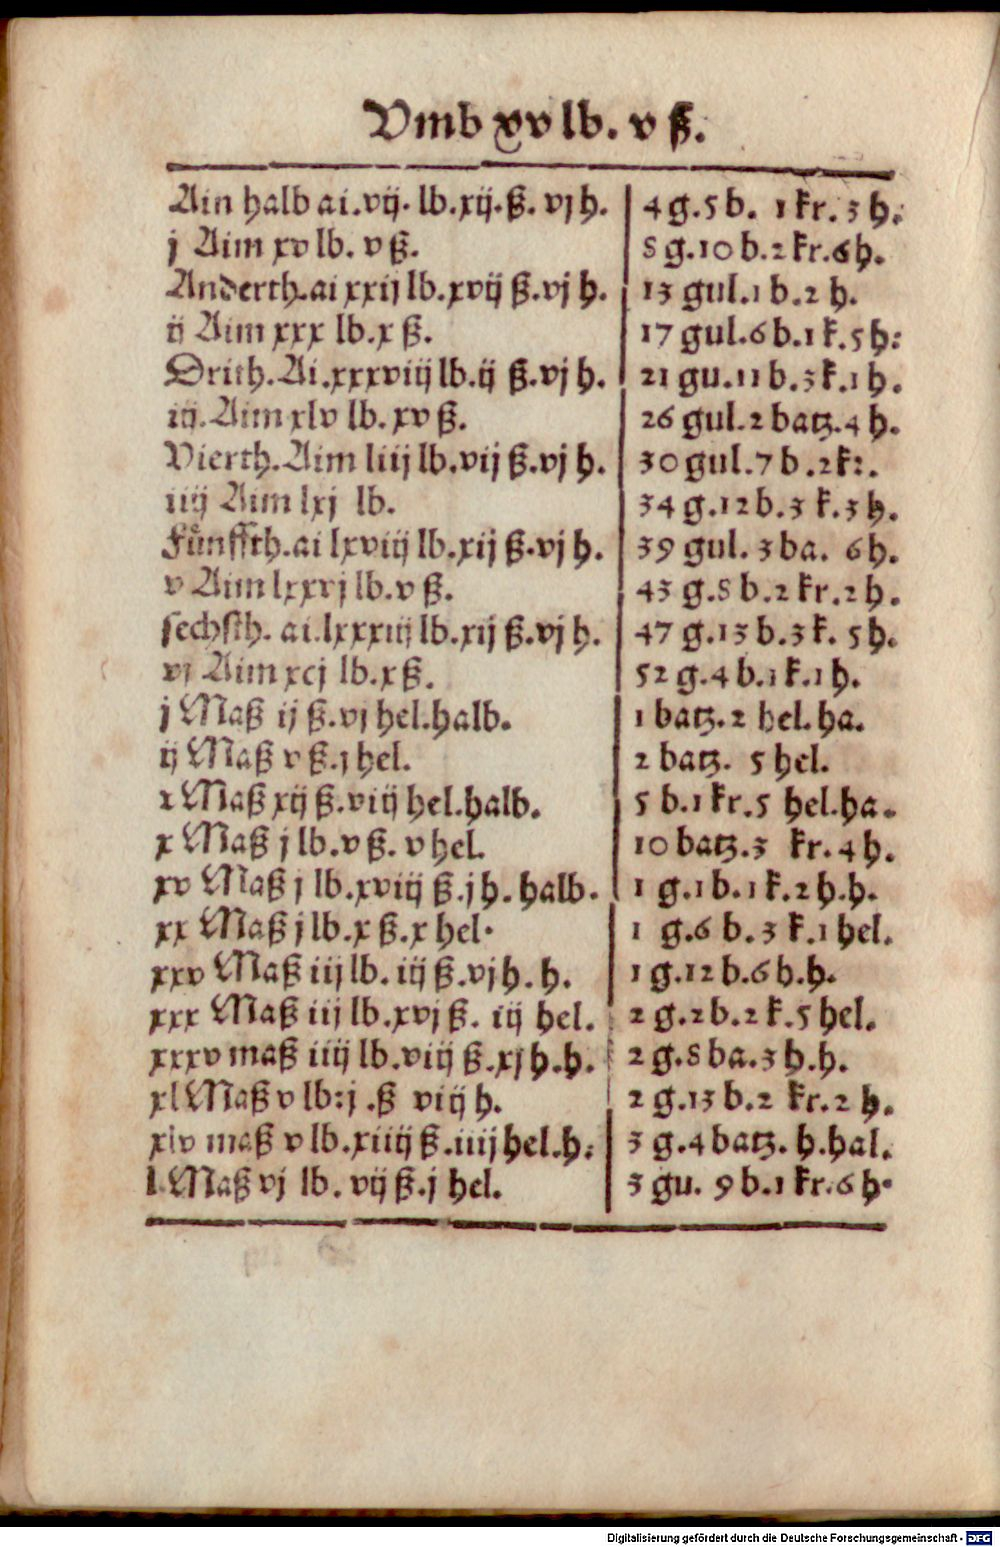 Vmb xv lb. v ß.
Ain halb ai. vij. lb. xij. ß. vj h. | 4 g. 5 b. 1 kr. 3 h.
j Aim xv lb. v ß. | 8 g. 10 b. 2 kr. 6 h.
Anderth. ai xxij lb. xvij ß. vj h. | 13 gul. 1 b. 2 h.
ij Aim xxx lb. x ß. | 17 gul. 6 b. 1 k. 5 h:
Drith. Ai. xxxviij lb. ij ß. vj h. | 21 gu. 11 b. 3 k. 1 h.
iij. Aim xlv lb. xv ß. | 26 gul. 2 batz. 4 h.
Vierth. Aim liij lb. vij ß. vj h. | 30 gul. 7 b. 2 kr.
iiij Aim lxj lb. | 34 g. 12 b. 3 k. 3 h.
Fünffth. ai lxviij lb. xij ß. vj h. | 39 gul. 3 ba. 6 h.
v Aim lxxvj lb. v ß. | 43 g. 8 b. 2 kr. 2 h.
sechsth. ai. lxxxiij lb. xij ß. vj h. | 47 g. 13 b. 3 k. 5 h.
vj Aim xcj lb. x ß. | 52 g. 4 b. 1 k. 1 h.
j Maß ij ß. vj hel. halb. | 1 batz. 2 hel. ha.
ij Maß v ß. j hel. | 2 batz. 5 hel.
v Maß xij ß. viij hel. halb. | 5 b. 1 kr. 5 hel. ha.
x Maß j lb. v ß. v hel. | 10 batz. 3 kr. 4 h.
xv Maß j lb. xviij ß. j h. halb. | 1 g. 1 b. 1 k. 2 h. h.
xx Maß j lb. x ß. x hel. | 1 g. 6 b. 3 k. 1 hel.
xxv Maß iij lb. iij ß. vj h. h. | 1 g. 12 b. 6 h. h.
xxx Maß iij lb. xvj ß. iij hel. | 2 g. 2 b. 2 k. 5 hel.
xxxv maß iiij lb. viij ß. xj h. h. | 2 g. 8 ba. 3 h. h.
xl Maß v lb: j. ß viij h. | 2 g. 13 b. 2 kr. 2 h.
xlv maß v lb. xiiij ß. iiij hel. h: | 3 g. 4 batz. h. hal.
l. Maß vj lb. vij ß. j hel. | 3 gu. 9 b. 1 kr. 6 h.
Digitalisierung gefördert durch die Deutsche Forschungsgemeinschaft - DFG